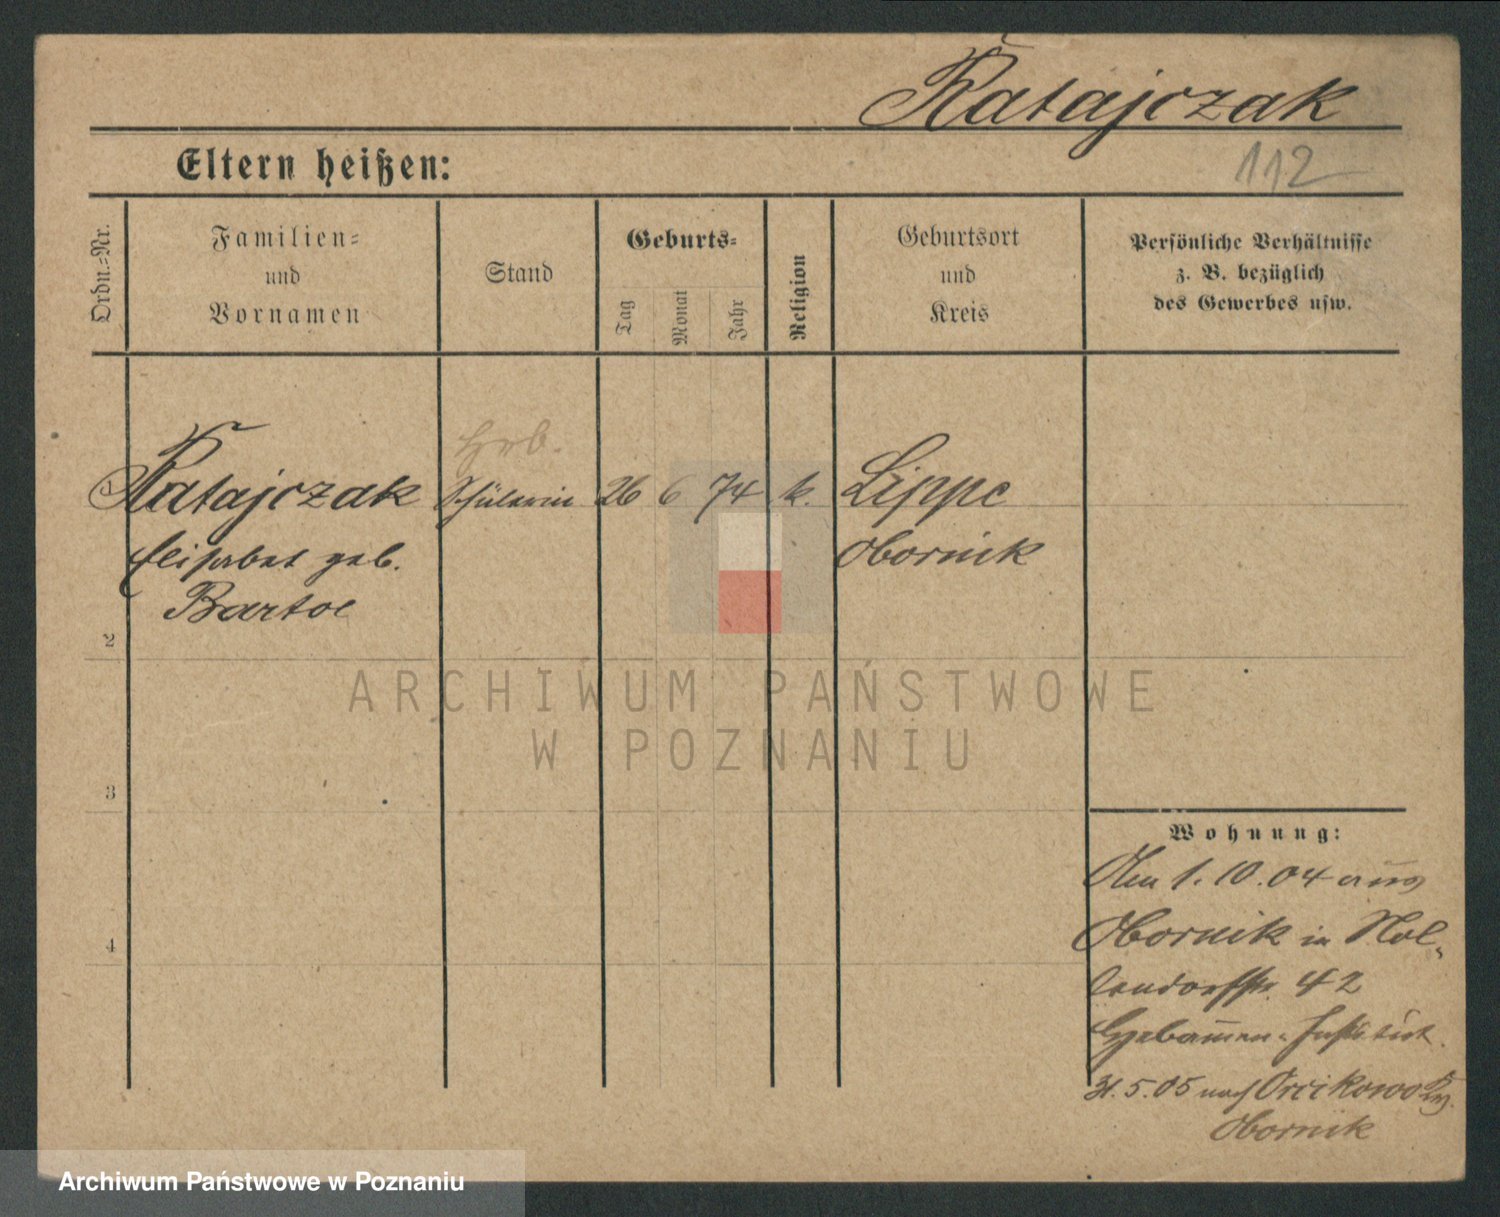 Ratajczak
Eltern heißen:
112
Ordn.-Nr.
Familien-
und
Vornamen
Stand
Geburts-
Tag
Monat
Jahr
Religion
Geburtsort
und
Kreis
Persönliche Verhältnisse
z. B. bezüglich
des Gewerbes usw.
Heb.
Ratajczak Schülerin 26 6 74 k. Lippe
Elisabet geb. Obornik
Bartol
2
3
4
Wohnung:
Am 1.10.04 aus
Obornik in Nol-
lendorfstr. 42
Hebamen-Institut.
31.5.05 nach Krs.
Obornik
ARCHIWUM PAŃSTWOWE
W POZNANIU
Archiwum Państwowe w Poznaniu